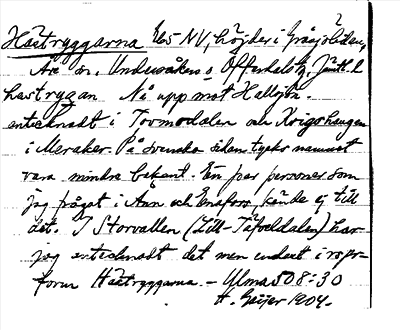 Hästryggarna E65 NV, höjder i Gråsjöliden,
Åre sn. Undersåkers o. Offerdals tg, Jämtl. l
hastrygan Nå upp mot Hallsjön.
antecknadt i Tovmodalen och Kvigohaugen
i Meraker. På svenska sidan tycks namnet
vara mindre bekant. En par personer som
jag frågat i Ånn och Enafors kände ej till
det. I Storvallen (Lill-Täfveldalen) har
jag antecknadt det men endast i sopr-
form Hästryggarna. – Ulma 508:30
H. Geijer 1904.